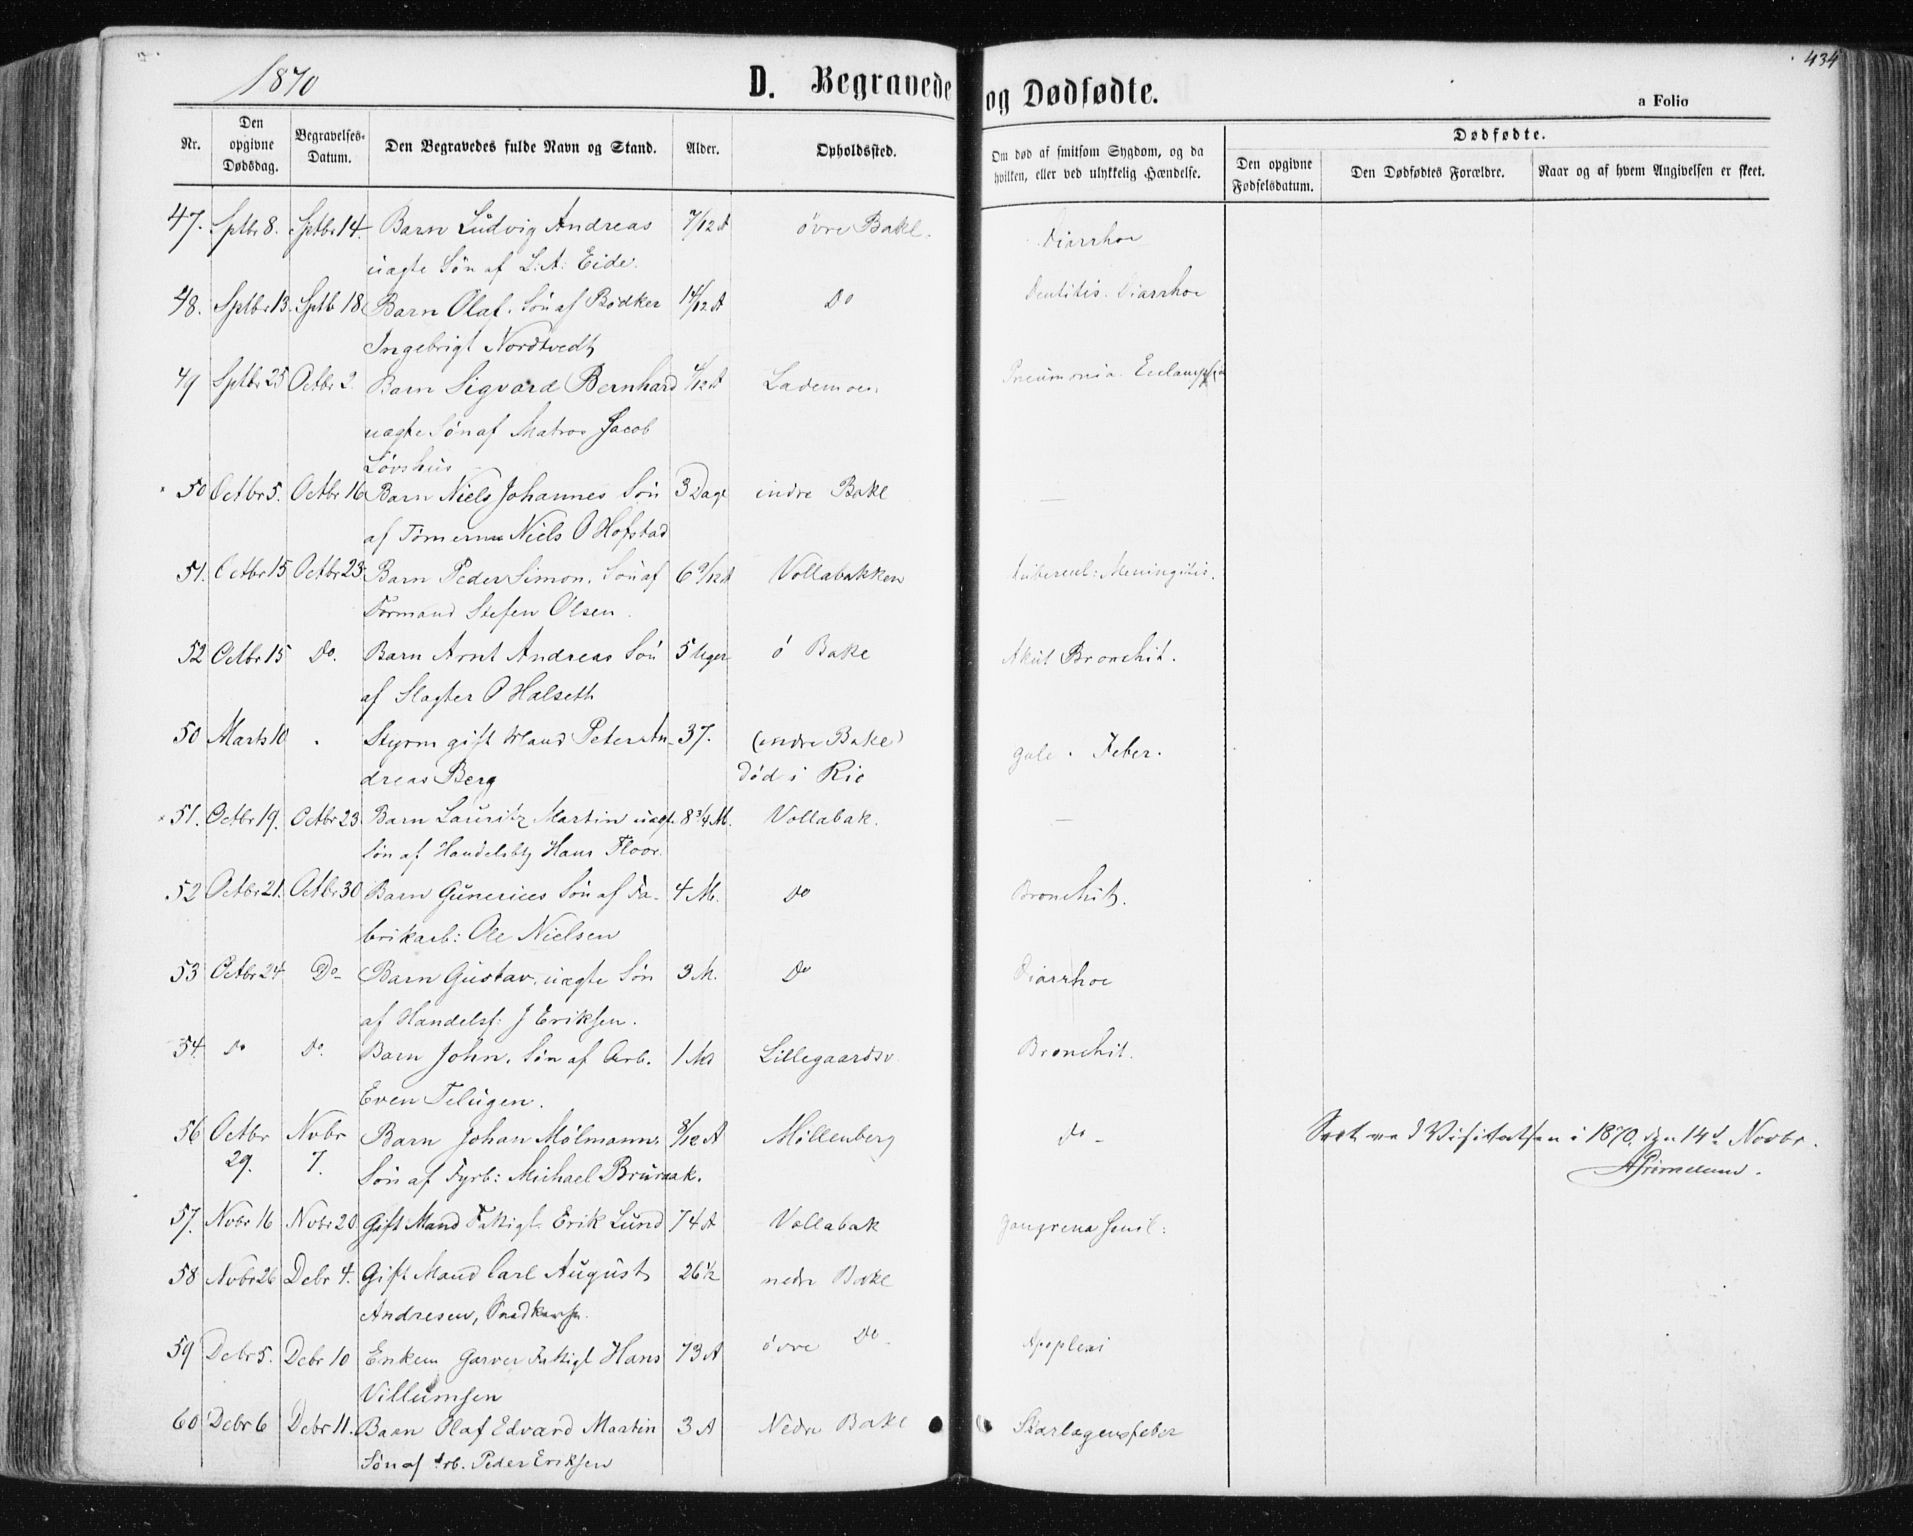 434
1870
D. Begravede og Dødfødte.
a Folio
Nr.
Den opgivne Dødsdag.
Begravelses-Datum.
Den Begravedes fulde Navn og Stand.
Alder.
Opholdssted.
Om død af smitsom Sygdom, og da hvilken, eller ved ulykkelig Hændelse.
Dødfødte.
Den opgivne Fødselsdatum.
Den Dødfødtes Forældre.
Naar og af hvem Angivelsen er skeet.
47. Sptbr 8. Sptbr 14. Barn Ludvig Andreas 7/12 A øvre Bakl. Diarrhoe
uægte Søn af L. A. Eide.
48. Sptbr 13. Sptb 18 Barn Olaf. Søn af Bødker 14/12 A Do Dentitis. Diarrhoe
Ingebrigt Nordtvedt
49 Sptbr 25 Octbr 2. Barn Sigvard Bernhard 4/12 A Lademoen. Pneumonia. Eclampsia
uægte Søn af Matros Jacob
Løvshus
50 Octbr 5. Octbr 16 Barn Niels Johannes Søn 3 Dage indre Bakl —
af Tømerm Niels O Hofstad
51. Octbr 15 Octbr 23 Barn Peder Simon. Søn af 6 9/12 A Vollabakken Tubercul: Meningitis.
Formand Stefen Olsen.
52 Octbr 15 Do. Barn Arnt Andreas Søn 5 Uger ø Bake Akut Bronchit.
af Slagter O Halseth
50 Marts 10 . Styrm gift Mand Peter An- 37. (indre Bake) gule . Feber.
dreas Berg død i Rio
51. Octbr 19. Octbr 23 Barn Lauritz Martin uægt. 8 3/4 M. Vollabak. —
Søn af Handelsbtj Hans Floor.
52 Octbr 21. Octbr 30 Barn Gunerius Søn af Fa- 4 M. Do Bronchit.
brikarb: Ole Nielsen
53 Octbr 24 Do Barn Gustav. uægte Søn 3 M. Do Diarrhoe
af Handelsf: J Eriksen.
54 Do Do. Barn John. Søn af Arb. 1 Md Lillegaardsv. Bronchit.
Even Telugen.
56 Octbr Novbr Barn Johan Mølmann. 8/12 A Møllenberg do - 1870. den 14d Novbr.
29. 7. Søn af Fyrb: Michael Bruraak.
57. Novbr 16 Novbr 20. Gift Mand Fattigl. Erik Lund 74 A Vollabak Gangrena senil:
58 Novbr 26 Debr 4. Gift Mand Carl August 26 1/2 nedre Bakl
Andresen,
59 Debr 5. Debr 10 Enkem Garver Fattigl Hans 73 A øvre Do - Apoplexi
Villumsen
60 Debr 6 Debr 11. Barn Olaf Edvard Martin 3 A Nedre Bakl Skarlagensfeber
Søn af Arb. Peder Eriksen